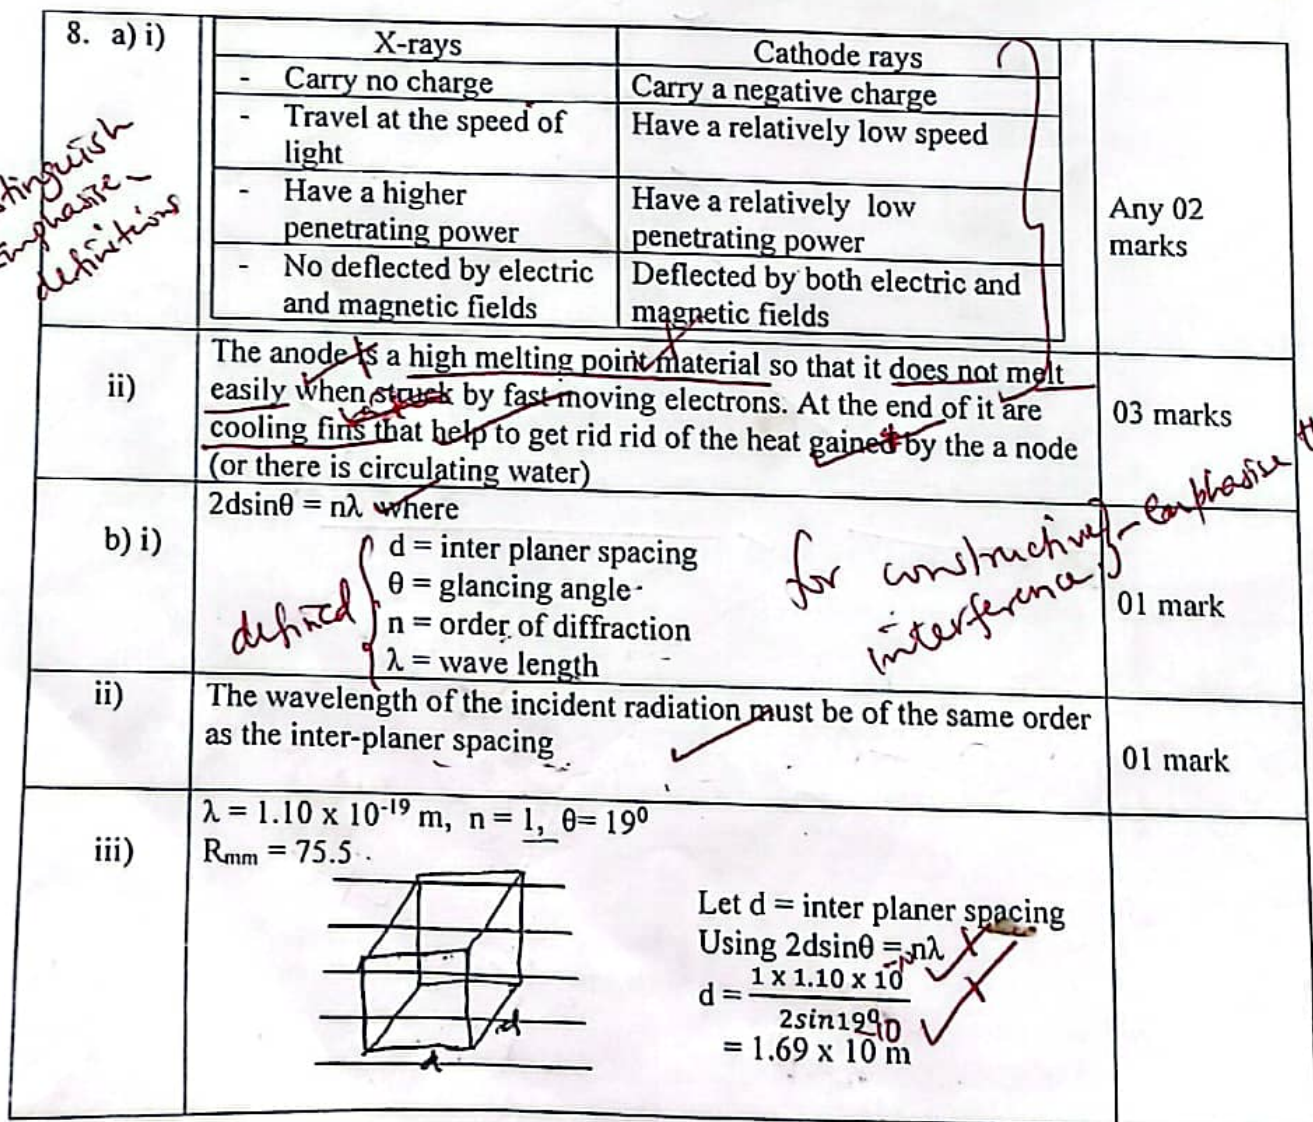 8. a) i)
X-rays
Cathode rays
- Carry no charge
Carry a negative charge
- Travel at the speed of
light
Have a relatively low speed
- Have a higher
penetrating power
Have a relatively low
penetrating power
- No deflected by electric
and magnetic fields
Deflected by both electric and
magnetic fields
Any 02
marks
emphasise
definitions
ii)
The anode is a high melting point material so that it does not melt
easily when struck by fast moving electrons. At the end of it are
cooling fins that help to get rid rid of the heat gained by the a node
(or there is circulating water)
03 marks
b) i)
2dsinθ = nλ where
d = inter planer spacing
θ = glancing angle
n = order of diffraction
λ = wave length
defined
for constructive - emphasise
interference
01 mark
ii)
The wavelength of the incident radiation must be of the same order
as the inter-planer spacing
01 mark
iii)
λ = 1.10 x 10⁻¹⁹ m, n = 1, θ= 19⁰
Rmm = 75.5
d
d
Let d = inter planer spacing
Using 2dsinθ = nλ
d = 1 x 1.10 x 10
2sin19⁰
= 1.69 x 10 m